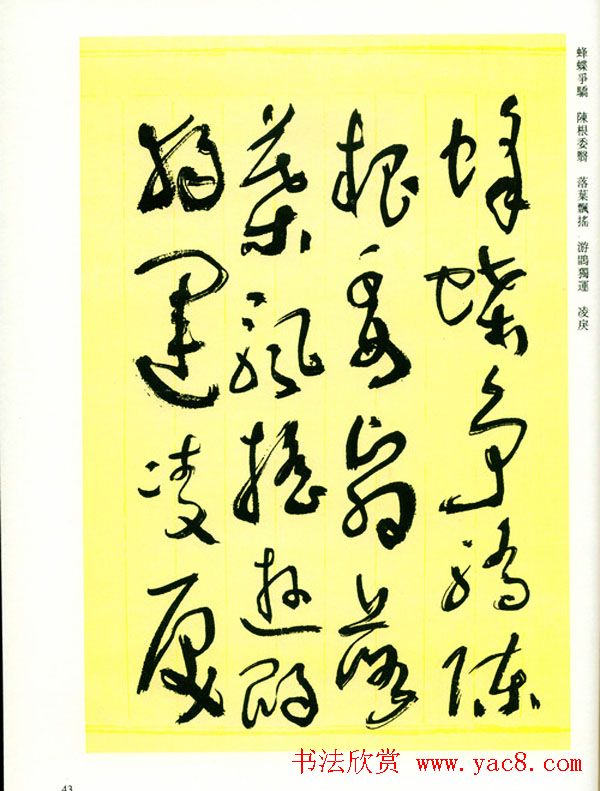 蜂蝶爭驕　陳根委翳　落葉飄搖　游鵾獨運　凌戾
蜂蝶爭驕陳
根委翳落
葉飄搖遊鵾
獨運凌戾
书法欣赏 www.yac8.com
43